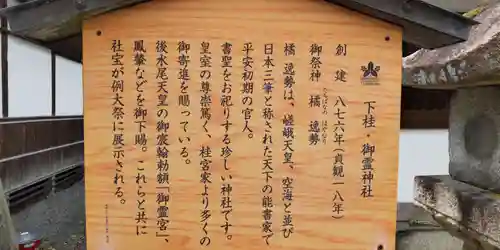 下桂・御霊神社
創建 八七六年（貞観一八年）
御祭神 橘 逸勢
たちばな はやなり
橘逸勢は、嵯峨天皇、空海と並び
日本三筆と称された天下の能書家で
平安初期の官人。
書聖をお祀りする珍しい神社です。
皇室の尊崇篤く、桂宮家より多くの
御寄進を賜っている。
後水尾天皇の御宸翰勅額「御霊宮」、
鳳輦などを御下賜。これらと共に
社宝が例大祭に展示される。